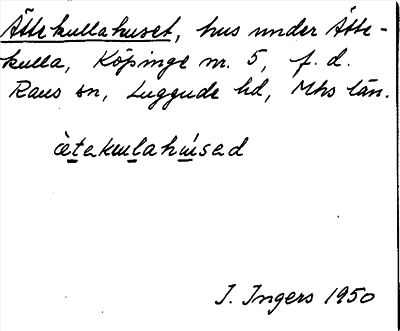 Ättekullahuset, hus under Ätte-
kulla, Köpinge nr. 5, f. d.
Raus sn, Luggude hd, Mhs län.
I. Ingers 1950